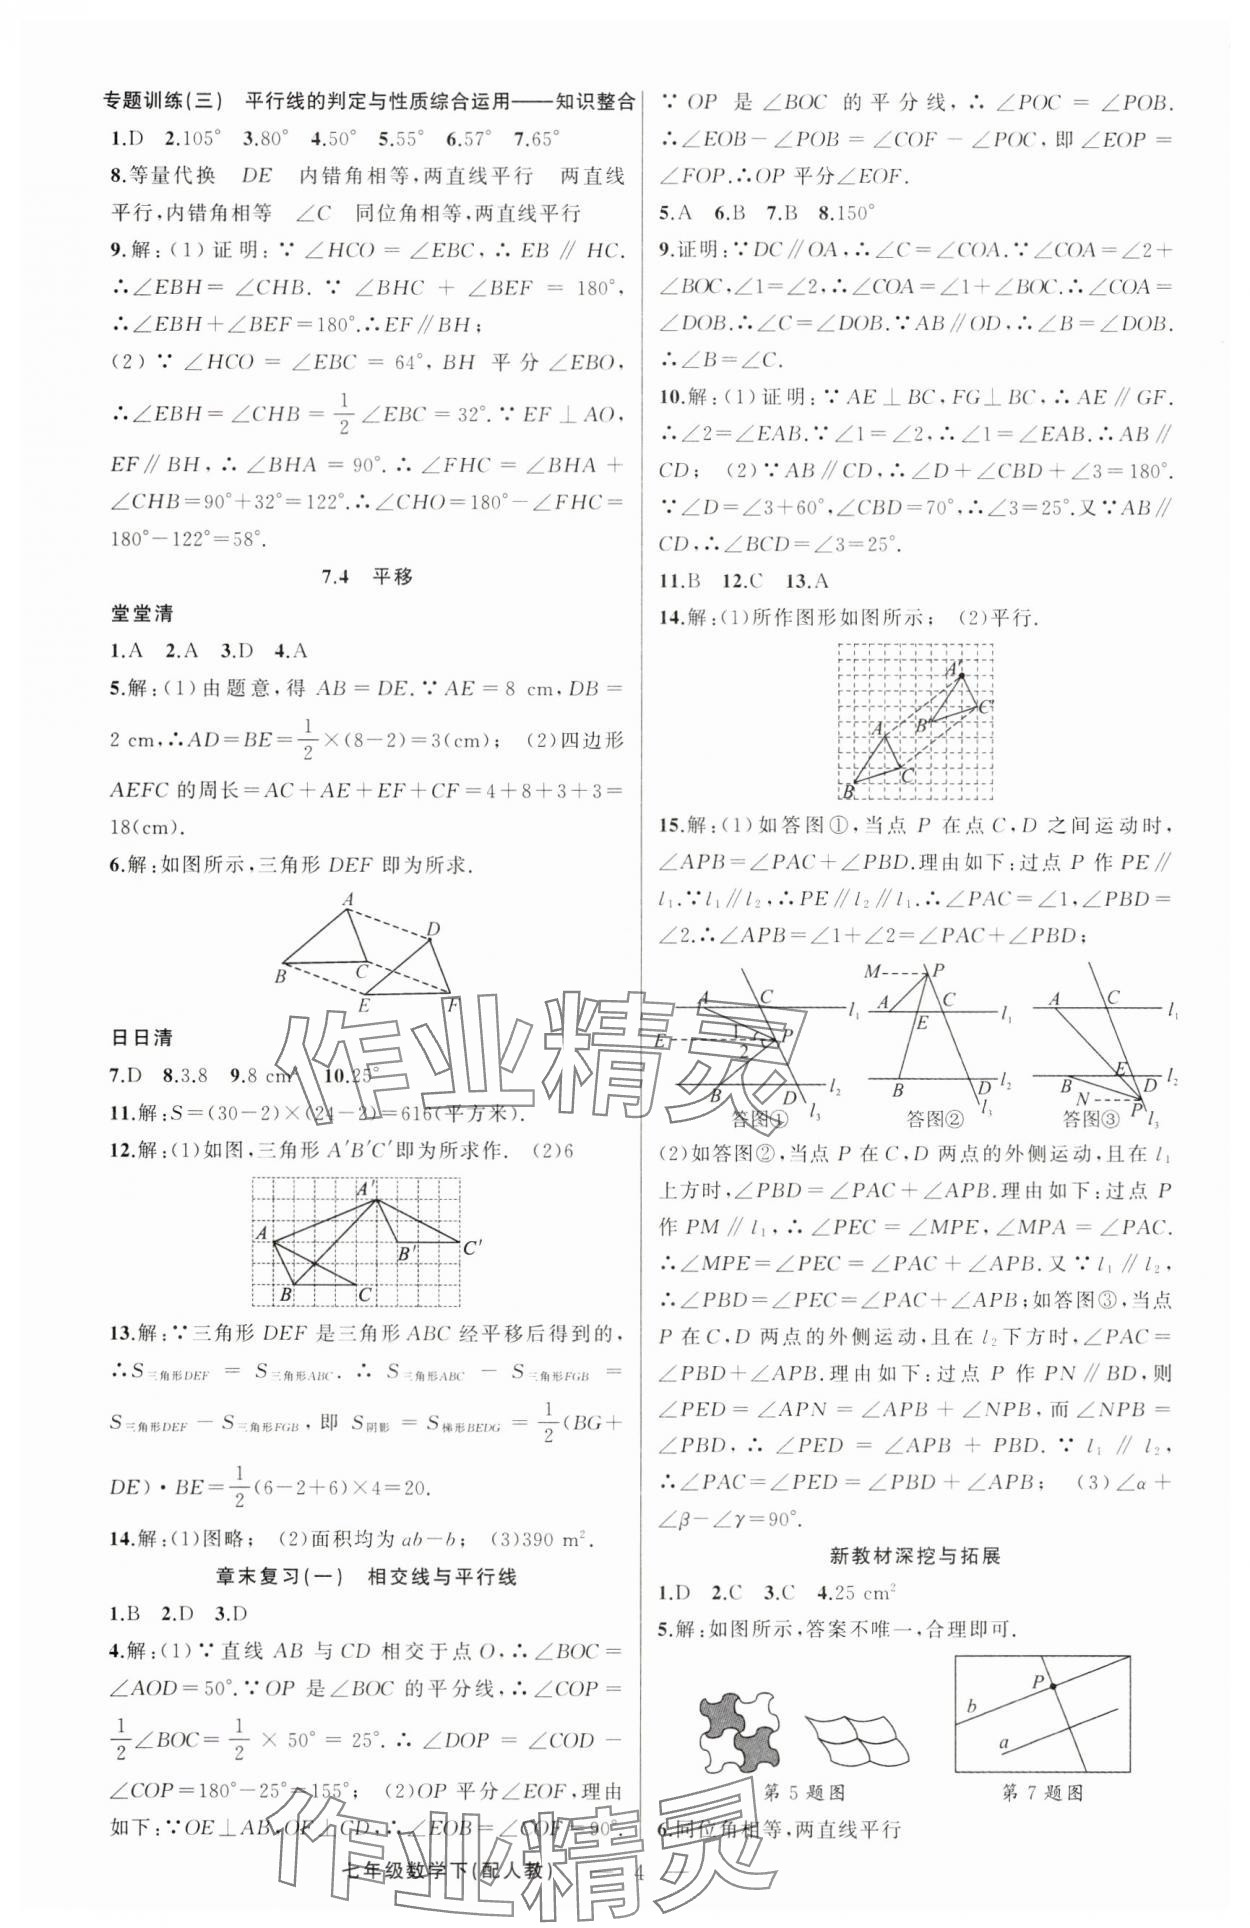 专题训练(三) 平行线的判定与性质综合运用——知识整合
1.D 2.105° 3.80° 4.50° 5.55° 6.57° 7.65°
8.等量代换 DE 内错角相等,两直线平行 两直线
平行,内错角相等 ∠C 同位角相等,两直线平行
9.解:(1)证明:∵∠HCO=∠EBC,∴EB∥HC.
∴∠EBH=∠CHB.∵∠BHC+∠BEF=180°,
∴∠EBH+∠BEF=180°.∴EF∥BH;
(2)∵∠HCO=∠EBC=64°,BH 平分∠EBO,
∴∠EBH=∠CHB=1/2∠EBC=32°.∵EF⊥AO,
EF∥BH,∴∠BHA=90°.∴∠FHC=∠BHA+
∠CHB=90°+32°=122°.∴∠CHO=180°-∠FHC=
180°-122°=58°.
7.4 平移
堂堂清
1.A 2.A 3.D 4.A
5.解:(1)由题意,得 AB=DE.∵AE=8 cm,DB=
2 cm,∴AD=BE=1/2×(8-2)=3(cm); (2)四边形
AEFC 的周长=AC+AE+EF+CF=4+8+3+3=
18(cm).
6.解:如图所示,三角形 DEF 即为所求.
A
D
B
C
E
F
日日清
7.D 8.3.8 9.8 cm 10.25°
11.解:S=(30-2)×(24-2)=616(平方米).
12.解:(1)如图,三角形 A′B′C′即为所求作. (2)6
A′
A
B′
C′
B
C
13.解:∵三角形 DEF 是三角形 ABC 经平移后得到的,
∴S三角形DEF=S三角形ABC.∴S三角形ABC-S三角形FGB=
S三角形DEF-S三角形FGB,即 S阴影=S梯形BEDG=1/2(BG+
DE)·BE=1/2(6-2+6)×4=20.
14.解:(1)图略; (2)面积均为 ab-b; (3)390 m².
章末复习(一) 相交线与平行线
1.B 2.D 3.D
4.解:(1)∵直线 AB 与 CD 相交于点 O,∴∠BOC=
∠AOD=50°.∵OP 是∠BOC 的平分线,∴∠COP=
1/2∠BOC=1/2×50°=25°.∴∠DOP=∠COD-
∠COP=180°-25°=155°; (2)OP 平分∠EOF,理由
如下:∵OE⊥AB,OF⊥CD,∴∠EOB=∠COF=90°.
∵OP 是∠BOC 的平分线,∴∠POC=∠POB.
∴∠EOB-∠POB=∠COF-∠POC,即∠EOP=
∠FOP.∴OP 平分∠EOF.
5.A 6.B 7.B 8.150°
9.证明:∵DC∥OA,∴∠C=∠COA.∵∠COA=∠2+
∠BOC,∠1=∠2,∴∠COA=∠1+∠BOC.∴∠COA=
∠DOB.∴∠C=∠DOB.∵AB∥OD,∴∠B=∠DOB.
∴∠B=∠C.
10.解:(1)证明:∵AE⊥BC,FG⊥BC,∴AE∥GF.
∴∠2=∠EAB.∵∠1=∠2,∴∠1=∠EAB.∴AB∥
CD; (2)∵AB∥CD,∴∠D+∠CBD+∠3=180°.
∵∠D=∠3+60°,∠CBD=70°,∴∠3=25°.又∵AB∥
CD,∴∠BCD=∠3=25°.
11.B 12.C 13.A
14.解:(1)所作图形如图所示; (2)平行.
A′
C′
A
B′
C
B
15.解:(1)如答图①,当点 P 在点 C,D 之间运动时,
∠APB=∠PAC+∠PBD.理由如下:过点 P 作 PE∥
l₁.∵l₁∥l₂,∴PE∥l₂∥l₁.∴∠PAC=∠1,∠PBD=
∠2.∴∠APB=∠1+∠2=∠PAC+∠PBD;
A C l₁
E 1 2 P
B D l₂
l₃
答图①
M P
A C l₁
E
B D l₂
l₃
答图②
A C l₁
E l₂
B D
N P
l₃
答图③
(2)如答图②,当点 P 在 C,D 两点的外侧运动,且在 l₁
上方时,∠PBD=∠PAC+∠APB.理由如下:过点 P
作 PM∥l₁,∴∠PEC=∠MPE,∠MPA=∠PAC.
∴∠MPE=∠PEC=∠PAC+∠APB.又∵l₁∥l₂,
∴∠PBD=∠PEC=∠PAC+∠APB;如答图③,当点
P 在 C,D 两点的外侧运动,且在 l₂下方时,∠PAC=
∠PBD+∠APB.理由如下:过点 P 作 PN∥BD,则
∠PED=∠APN=∠APB+∠NPB,而∠NPB=
∠PBD,∴∠PED=∠APB+PBD.∵l₁∥l₂,
∴∠PAC=∠PED=∠PBD+∠APB; (3)∠α+
∠β-∠γ=90°.
新教材深挖与拓展
1.D 2.C 3.C 4.25 cm²
5.解:如图所示,答案不唯一,合理即可.
第 5 题图
P
b
a
第 7 题图
6.同位角相等,两直线平行
七年级数学下(配人教) — 4 —
作业精灵
作业精灵